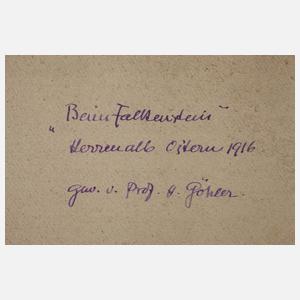 „Beim Falkenstein"
Herrenalb Ostern 1916.
gem. v. Prof. H. Göhler.